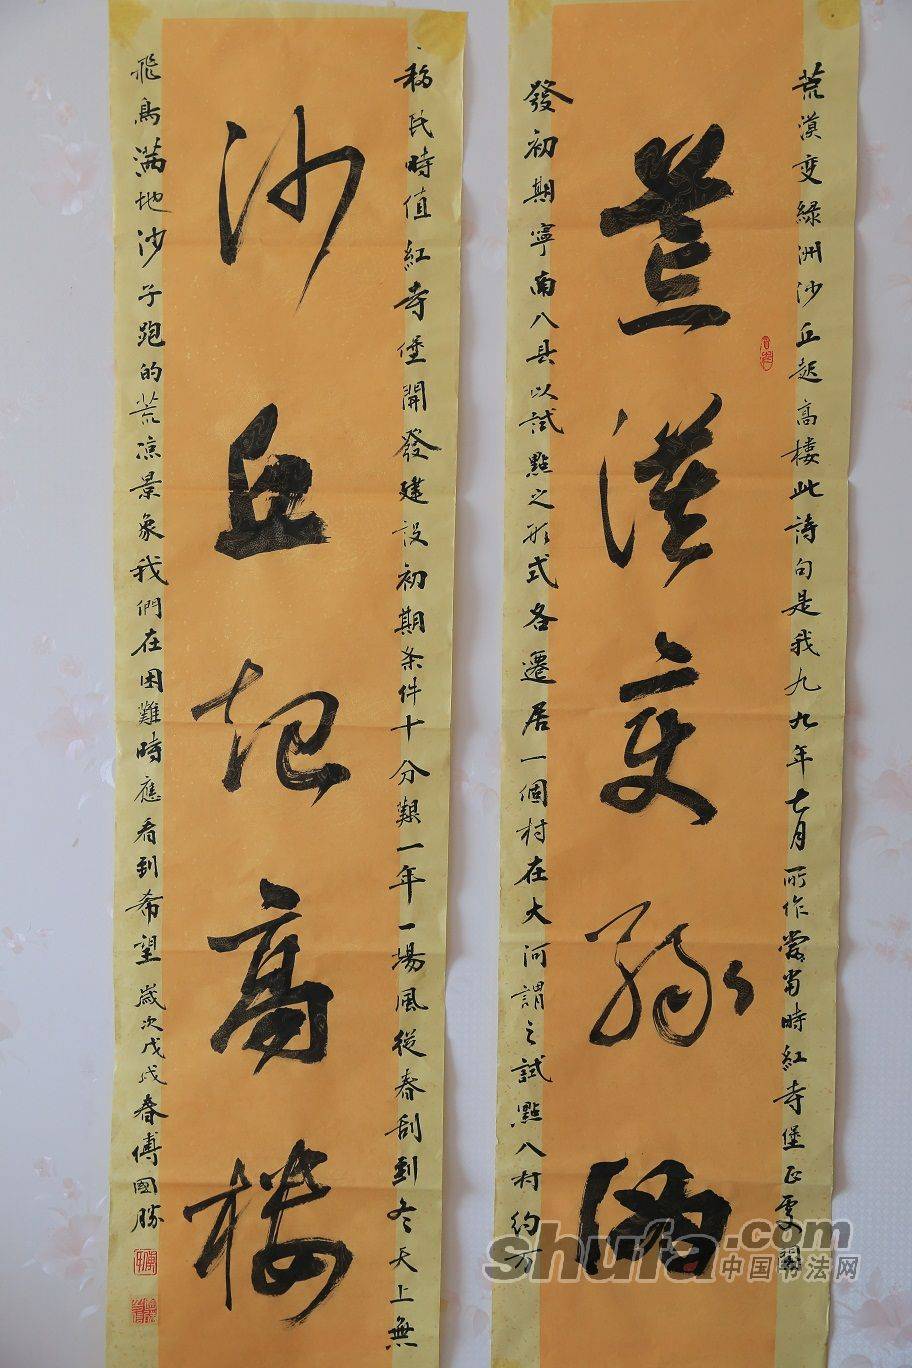 荒漠变绿洲
沙丘起高楼
荒漠变綠洲沙丘起高楼此詩句是我九九年七月所作當时紅寺堡正要開
發初期寧南八县以試點之形式各遷居一個村在大河謂之試點八村約万
移民時值紅寺堡開發建设初期条件十分艱一年一場風從春刮到冬天上無
飛鳥满地沙子跑的荒凉景象我們在困難時應看到希望歲次戊戌春傅國勝
shufa.com
中国书法网